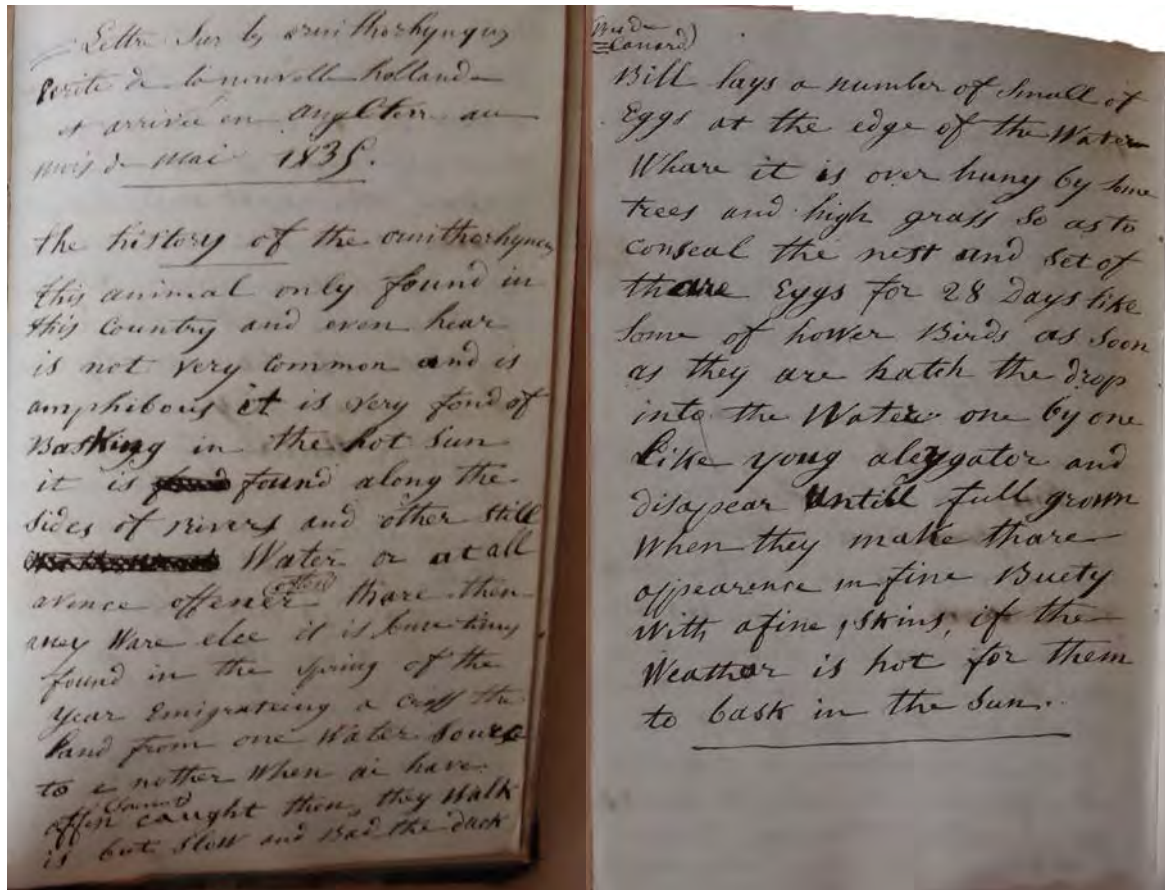 Lettre Sur les ornithorhynques
ecrite de la nouvelle hollande
et arrivée en angleterre au
mois de Mai 1835.
the history of the ornithorhyncus
this animal only found in
this Country and even hear
is not very Common and is
amphibous it is very fond of
Basking in the hot Sun
it is found along the
Sides of rivers and other still
Water or at all
avence offener thare then
aney Ware else it is sume times
found in the Spring of the
Year Emigrateing a cross the
Land from one Water Source
to a nother When ai have
offen caught them, they Walk
is but Slow and Bad the duck
(Bec de
Canard)
Bill lays a number of Small of
Eggs at the edge of the Water
Whare it is over hung by Some
trees and high grass So as to
conseal the nest and Set of
thare Eggs for 28 Days like
Some of hower Birds as Soon
as they are hatch the drop
into the Water one by one
Like young aleygator and
disapear Untill full grown
When they make thare
appearence in fine Buety
With a fine Skins, if the
Weather is hot for them
to bask in the Sun.